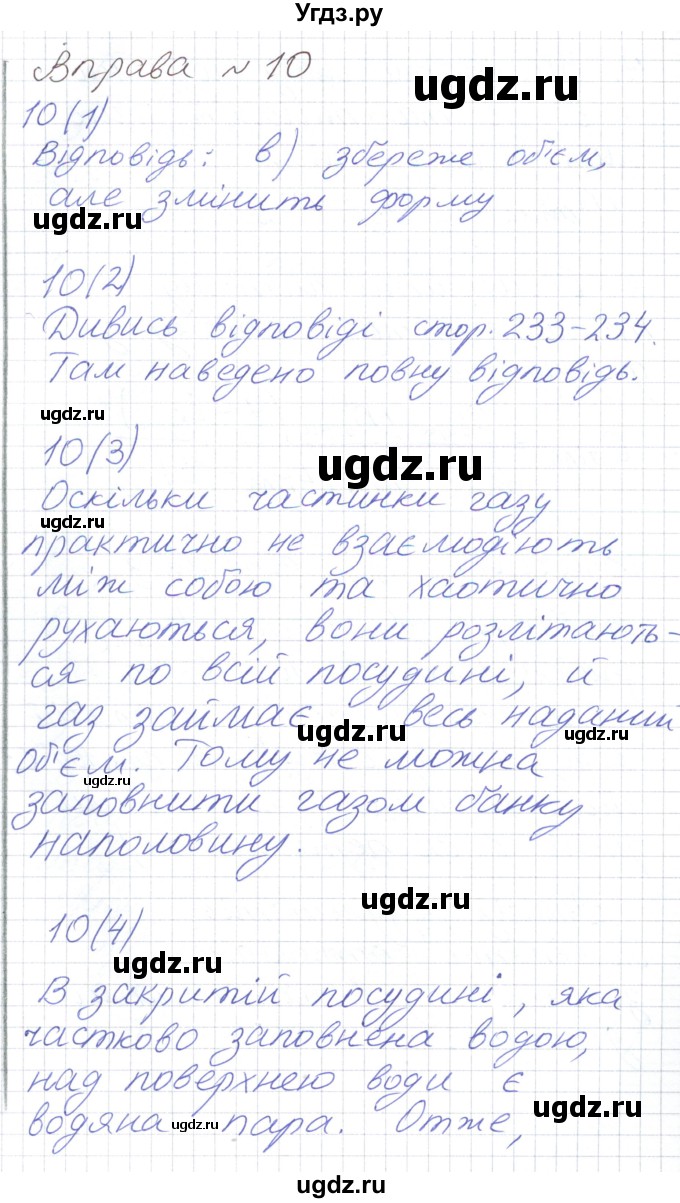 Угдз.ру
Вправа №10
ugdz.ru
10(1)
Відповідь: в) збереже об'єм,
але змінить форму
ugdz.ru
10(2)
Дивись відповіді стор. 233-234.
Там наведено повну відповідь.
ugdz.ru
10(3)
ugdz.ru
Оскільки частинки газу
ugdz.ru
практично не взаємодіють
між собою та хаотично
рухаються, вони розлітають-
ся по всій посудині, й
газ займає весь наданий
ugdz.ru
об'єм. Тому не можна
ugdz.ru
заповнити газом банку
наполовину.
ugdz.ru
10(4)
ugdz.ru
В закритій посудині, яка
частково заповнена водою,
над поверхнею води є
ugdz.ru
водяна пара. Отже,
ugdz.ru
ugdz.ru